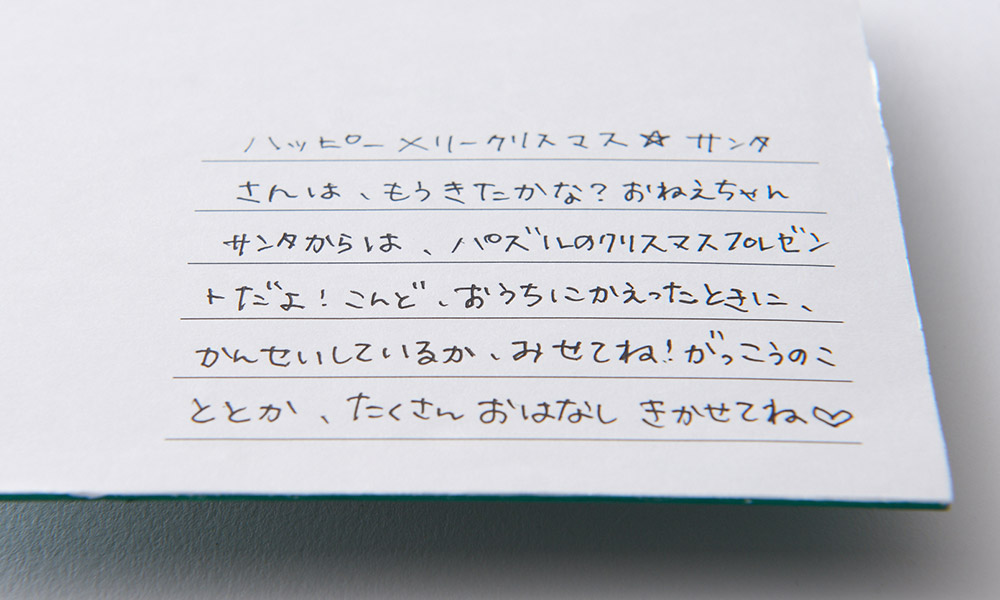 ハッピーメリークリスマス☆サンタ
さんは、もうきたかな？おねえちゃん
サンタからは、パズルのクリスマスプレゼン
トだよ！こんど、おうちにかえったときに、
かんせいしているか、みせてね！がっこうのこ
ととか、たくさんおはなしきかせてね♡